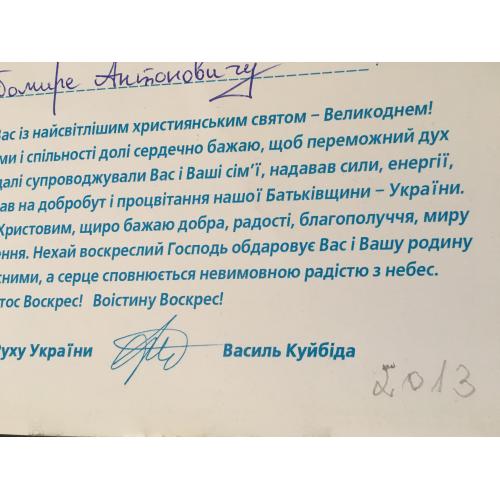 Антоновичу
Вас із найсвітлішим християнським святом – Великоднем!
ми і спільності долі сердечно бажаю, щоб переможний дух
далі супроводжували Вас і Ваші сім’ї, надавав сили, енергії,
ав на добробут і процвітання нашої Батьківщини – України.
Христовим, щиро бажаю добра, радості, благополуччя, миру
ення. Нехай воскреслий Господь обдаровує Вас і Вашу родину
сними, а серце сповнюється невимовною радістю з небес.
тос Воскрес! Воістину Воскрес!
Руху України Василь Куйбіда
2013